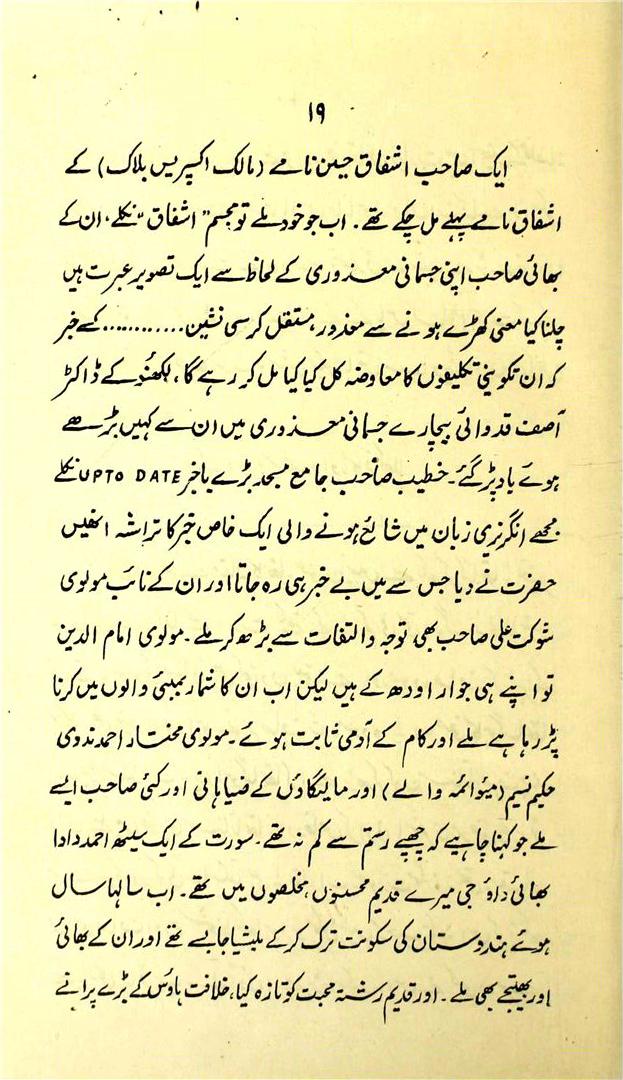 ۱۹
ایک صاحب اشفاق حسین نامے (مالک اکسپریس بلاک) کے
اشفاق نامے پہلے مل چکے تھے۔ اب جو خود ملے تو مجسم "اشفاق" نکلے، ان کے
بھائی صاحب اپنی جسمانی معذوری کے لحاظ سے ایک تصویر عبرت ہیں
چلنا کیا معنی کھڑے ہونے سے معذور، مستقل کرسی نشین............ کسے خبر
کہ ان تکوینی تکلیفوں کا معاوضہ کل کیا کیا مل کر رہے گا، لکھنؤ کے ڈاکٹر
آصف قدوائی بیچارے جسمانی معذوری میں ان سے کہیں بڑھے
ہوئے یاد پڑ گئے۔ خطیب صاحب جامع مسجد بڑے باخبر UPTO DATE نکلے
مجھے انگریزی زبان میں شائع ہونے والی ایک خاص خبر کا تراشہ انھیں
حضرت نے دیا جس سے میں بے خبر ہی رہ جاتا اور ان کے نائب مولوی
شوکت علی صاحب بھی توجہ والتفات سے بڑھ کر ملے۔ مولوی امام الدین
تو اپنے ہی جوار اودھ کے ہیں لیکن اب ان کا شمار بمبئی والوں میں کرنا
پڑ رہا ہے ملے اور کام کے آدمی ثابت ہوئے۔ مولوی مختار احمد ندوی
حکیم نسیم (میؤائمہ والے) اور مالیگاؤں کے ضیا ہانی اور کئی صاحب ایسے
ملے جو کہنا چاہیے کہ چھپے رستم سے کم نہ تھے۔ سورت کے ایک سیٹھ احمد دادا
بھائی داؤ جی میرے قدیم محسنوں، مخلصوں میں تھے۔ اب سالہا سال
ہوئے ہندوستان کی سکونت ترک کرکے ملیشیا جابسے تھے اور ان کے بھائی
اور بھتیجے بھی ملے۔ اور قدیم رشتہ محبت کو تازہ کیا، خلافت ہاؤس کے بڑے پرانے